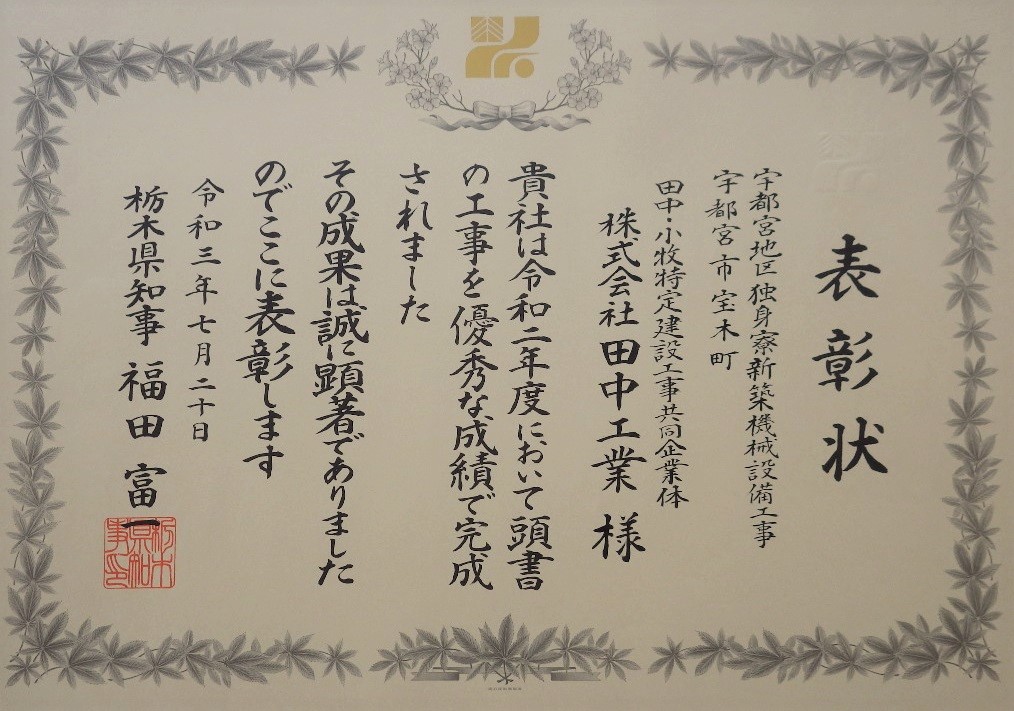 表彰状
宇都宮地区独身寮新築機械設備工事
宇都宮市宝木町
田中・小牧特定建設工事共同企業体
株式会社田中工業 様
貴社は令和二年度において頭書
の工事を優秀な成績で完成
されました
その成果は誠に顕著でありました
のでここに表彰します
令和三年七月二十日
栃木県知事 福田富一
栃木県知事印